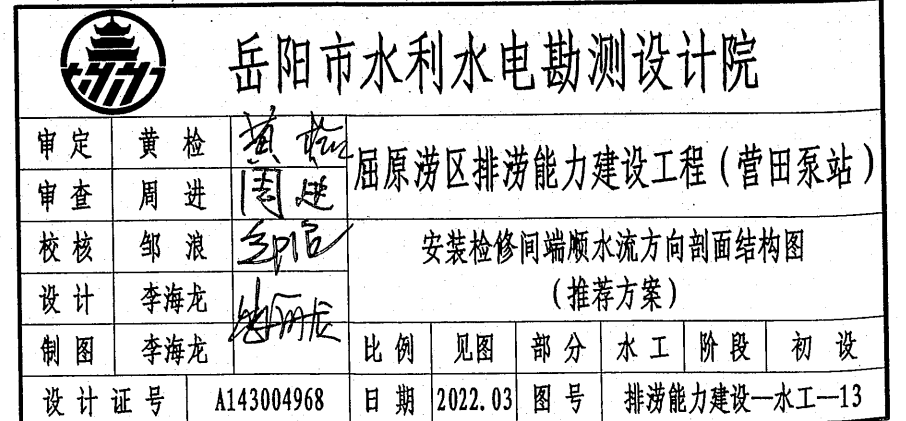 岳阳市水利水电勘测设计院
审定 黄检 黄检
屈原涝区排涝能力建设工程(营田泵站)
审查 周进 周进
校核 邹浪
安装检修间端顺水流方向剖面结构图
(推荐方案)
设计 李海龙
制图 李海龙 比例 见图 部分 水工 阶段 初设
设计证号 A143004968 日期 2022.03 图号 排涝能力建设—水工—13